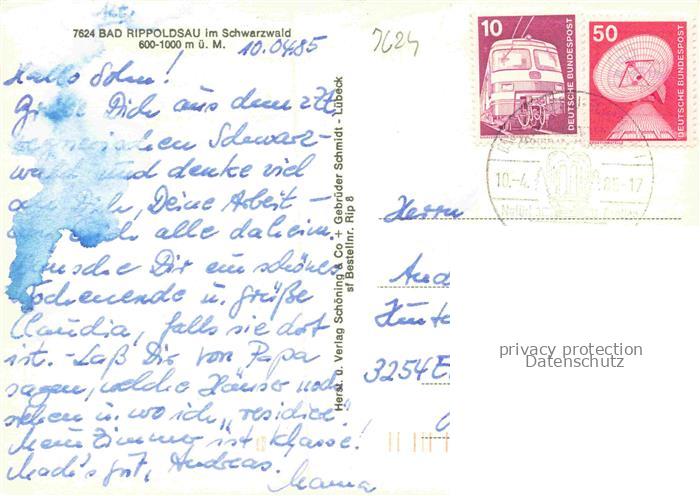 7624 BAD RIPPOLDSAU im Schwarzwald
600-1000 m ü. M.
10.04.85
Hallo Sohn!
Dich aus dem z.Zt.
Schwarz-
und denke viel
Deine Arbeit –
alle daheim.
Dir ein schönes
u. grüße
Claudia, falls sie dort
ist. - Laß Dir von Papa
sagen, welche Häuser noch
stehen u. wo ich „residiere“.
Mein Zimmer ist klasse!
Mach's gut, Andreas.
Mama
Herst. u. Verlag Schöning & Co + Gebrüder Schmidt - Lübeck
sf Bestellnr. Rip 8
7624
10
DEUTSCHE BUNDESPOST
50
DEUTSCHE BUNDESPOST
10.-4. 85-17
Herrn
And
3254 E
privacy protection
Datenschutz